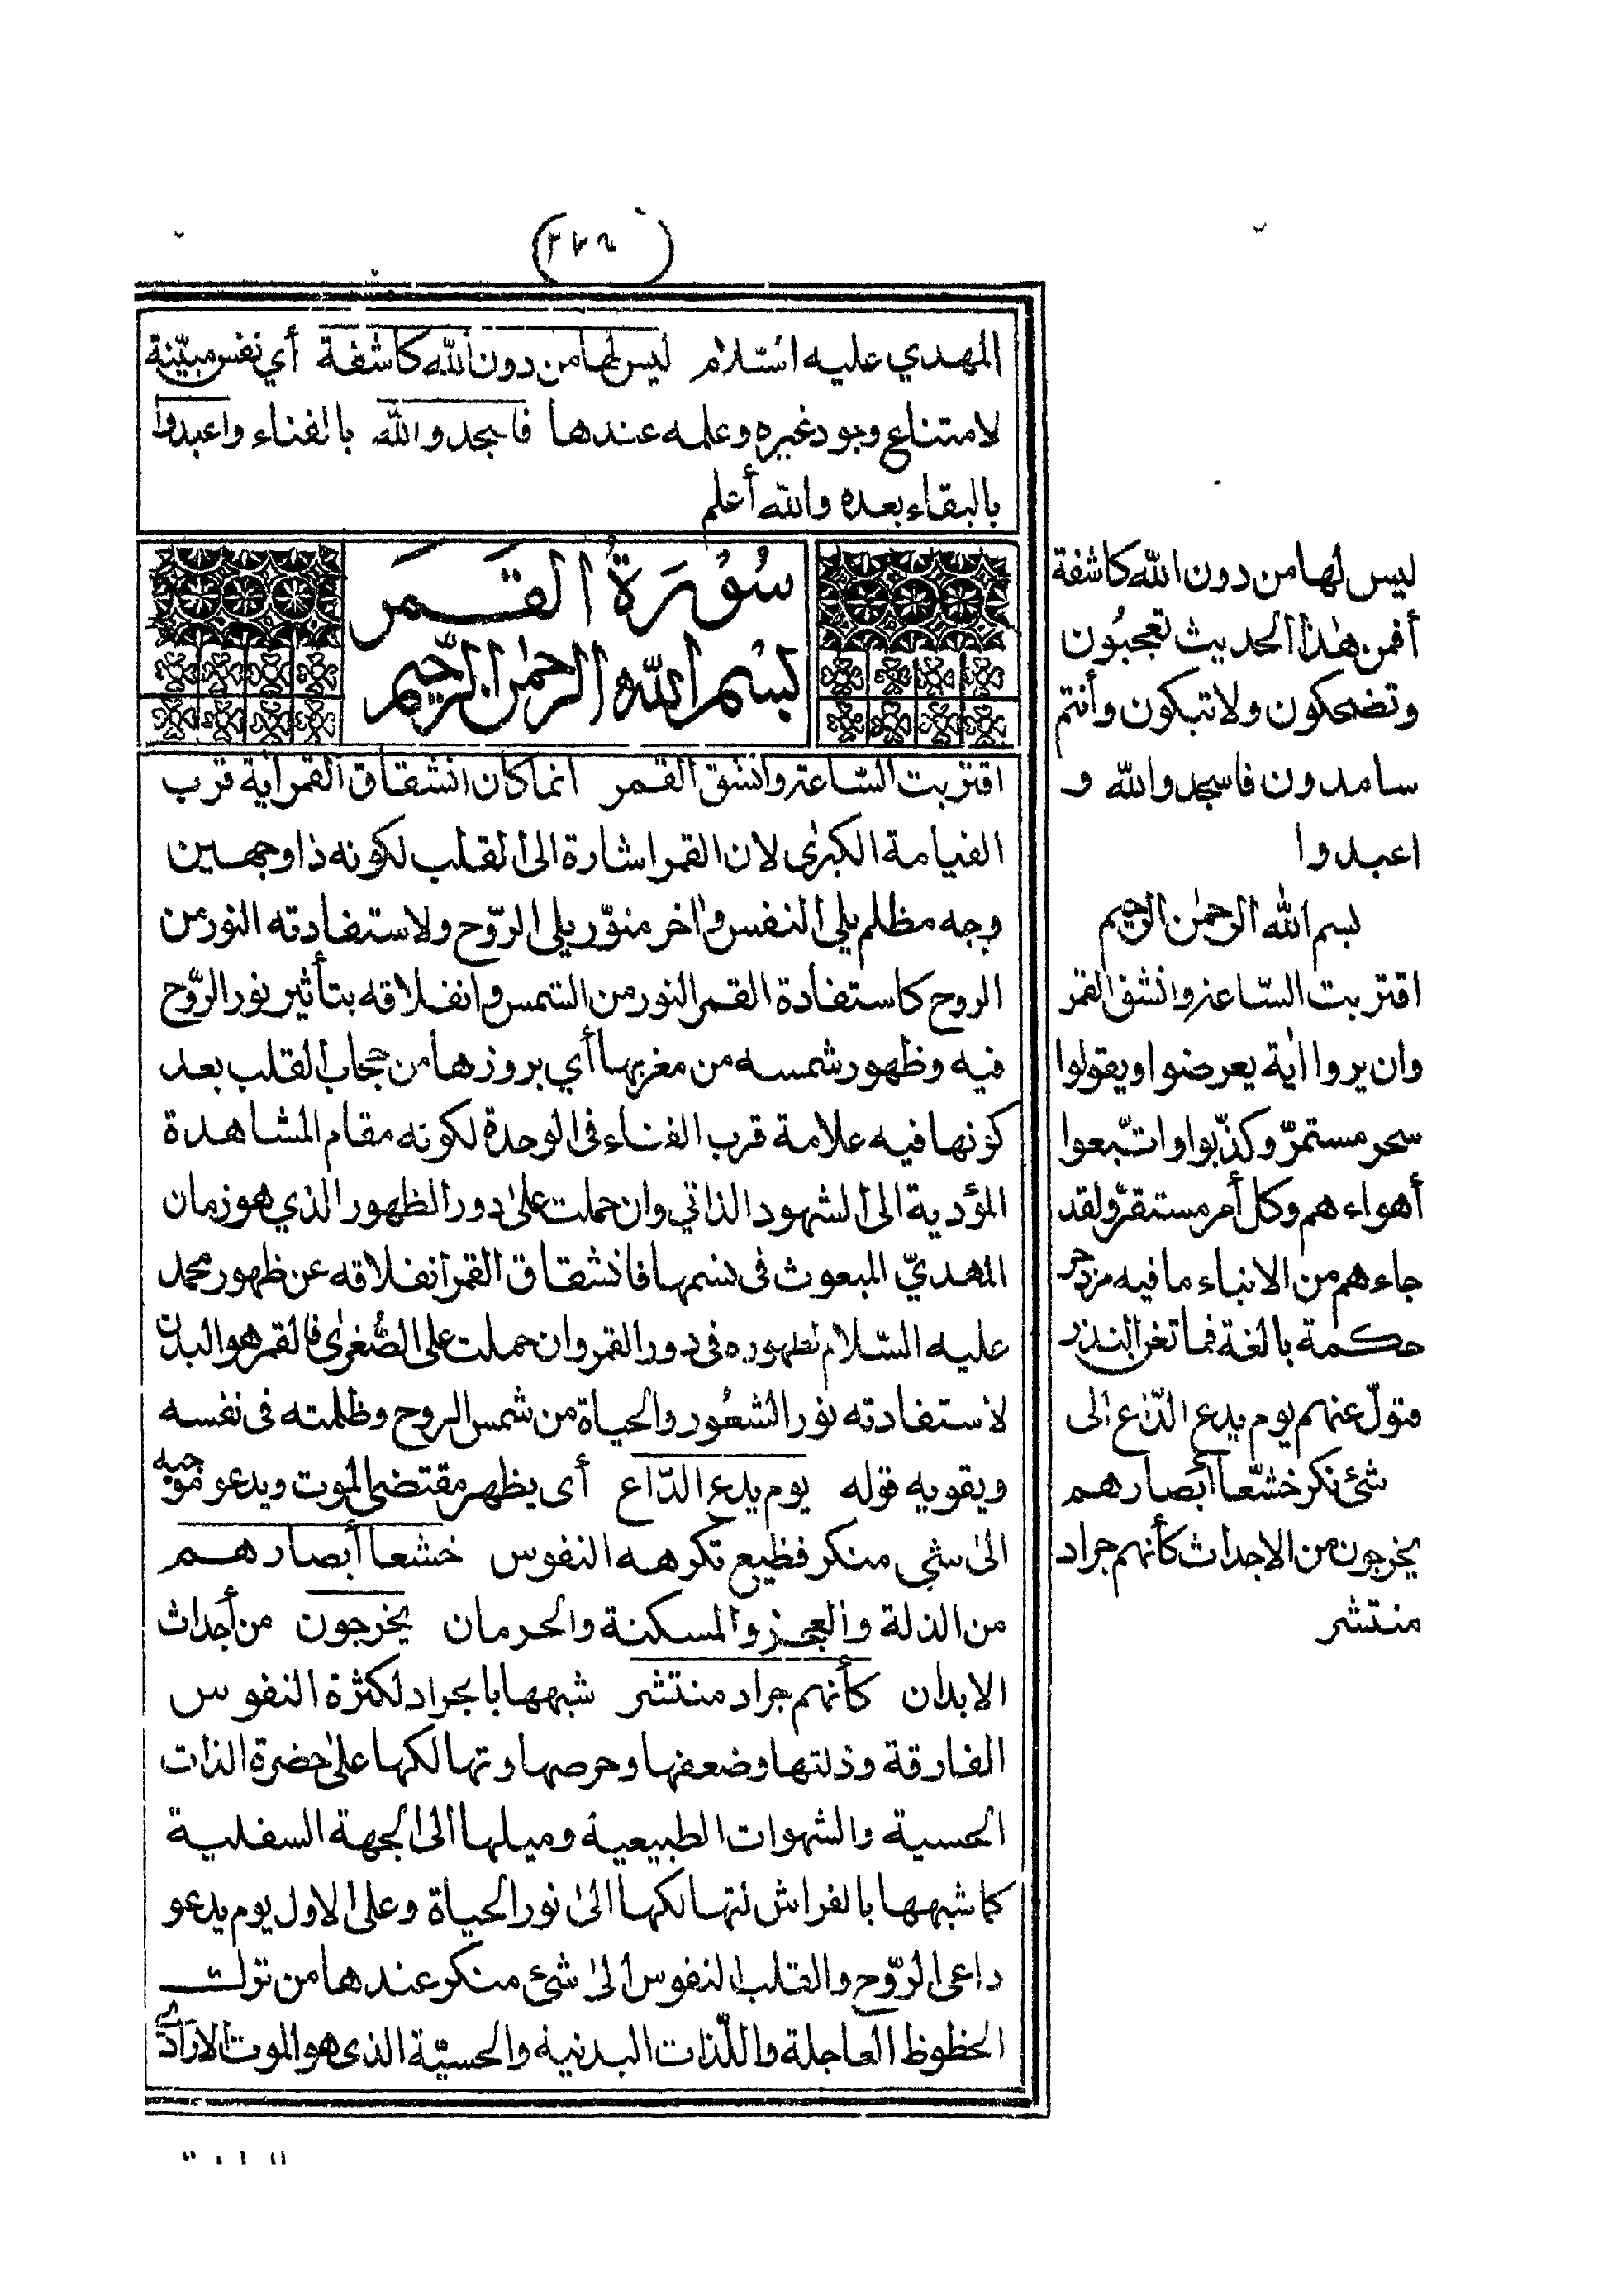 المهدي عليه السّلام ليس لها من دون الله كاشفة أي نفس مبيّنة
لامتناع وجود غيره وعلمه عندها فاسجدوا لله بالفناء واعبدوا
بالبقاء بعده والله أعلم
سُوْرَةُ القَمَر
بسم الله الرحمٰن الرّحيم
اقتربت السّاعة وانشق القمر انما كان انشقاق القمر اٰية قرب
القيامة الكبرٰى لان القمر اشارة الى القلب لكونه ذا وجهين
وجه مظلم يلى النفس واٰخر منوّر يلى الرّوح ولاستفادته النور من
الروح كاستفادة القمر النور من الشمس وانفلاقه بتأثير نور الرّوح
فيه وظهور شمسه من مغربها أي بروزها من حجاب القلب بعد
كونها فيه علامة قرب الفناء فى الوحدة لكونه مقام المشاهدة
المؤدية الى الشهود الذاتي وان حملت علىٰ دور الظهور الذي هو زمان
المهديّ المبعوث فى نسمها فانشقاق القمر انفلاقه عن ظهور محمد
عليه السّلام لظهوره فى دور القمر وان حملت على الصّغرٰى فالقمر هو البدن
لاستفادته نور الشعُور والحياة من شمس الروح وظلمته فى نفسه
ويقويه قوله يوم يدع الدّاع أى يظهر مقتضى الموت ويدعو موجبه
الىٰ شي منكر فظيع تكرهه النفوس خشعا أبصارهم
من الذلة والعجز والمسكنة والحرمان يخرجون من أجداث
الابدان كأنهم جراد منتشر شبهها بالجراد لكثرة النفوس
الفارقة وذلتها وضعفها وحرصها وتهالكها علىٰ حضرة الذات
الحسية والشهوات الطبيعية وميلها الى الجهة السفلية
كما شبهها بالفراش لتهالكها الىٰ نور الحياة وعلى الاول يوم يدعو
داعى الرّوح والقلب النفوس الىٰ شئ منكر عندها من ترك
الحظوظ العاجلة واللّذات البدنية والحسيّة الذى هو الموت الارادي
ليس لها من دون الله كاشفة
أفمن هٰذا الحديث تعجبُون
وتضحكون ولا تبكون وأنتم
سامدون فاسجدوا لله و
اعبدوا
بسم الله الرحمٰن الرحيم
اقتربت السّاعة وانشق القمر
وان يروا اٰية يعرضوا ويقولوا
سحر مستمرّ وكذّبوا واتّبعوا
أهواءهم وكل أمر مستقرّ ولقد
جاءهم من الانباء ما فيه مزدجر
حكمة بالغة فما تغن النذر
فتولّ عنهم يوم يدع الدّاع الى
شئ نكر خشّعا أبصارهم
يخرجون من الاجداث كأنهم جراد
منتشر